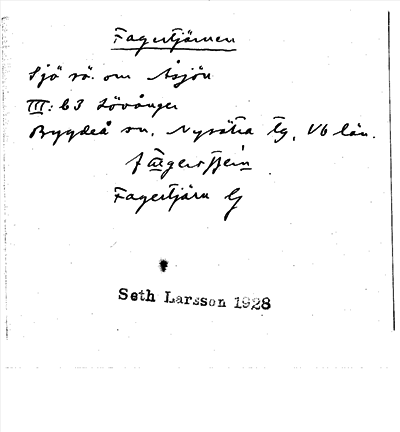 Fagertjärnen
Sjö sö. om Åsjön
III: 63 Lövånger
Bygdeå sn. Nysätra tg, Vb län.
Fagertjärn G
Seth Larsson 1928